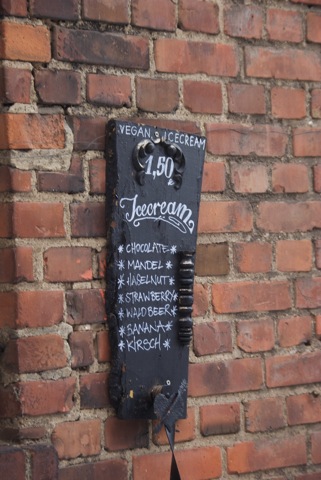 VEGAN ICECREAM
1,50
Icecream
* CHOCOLATE *
* MANDEL *
* HASELNUT *
* STRAWBERRY *
* WALDBEER *
* BANANA *
* KIRSCH *